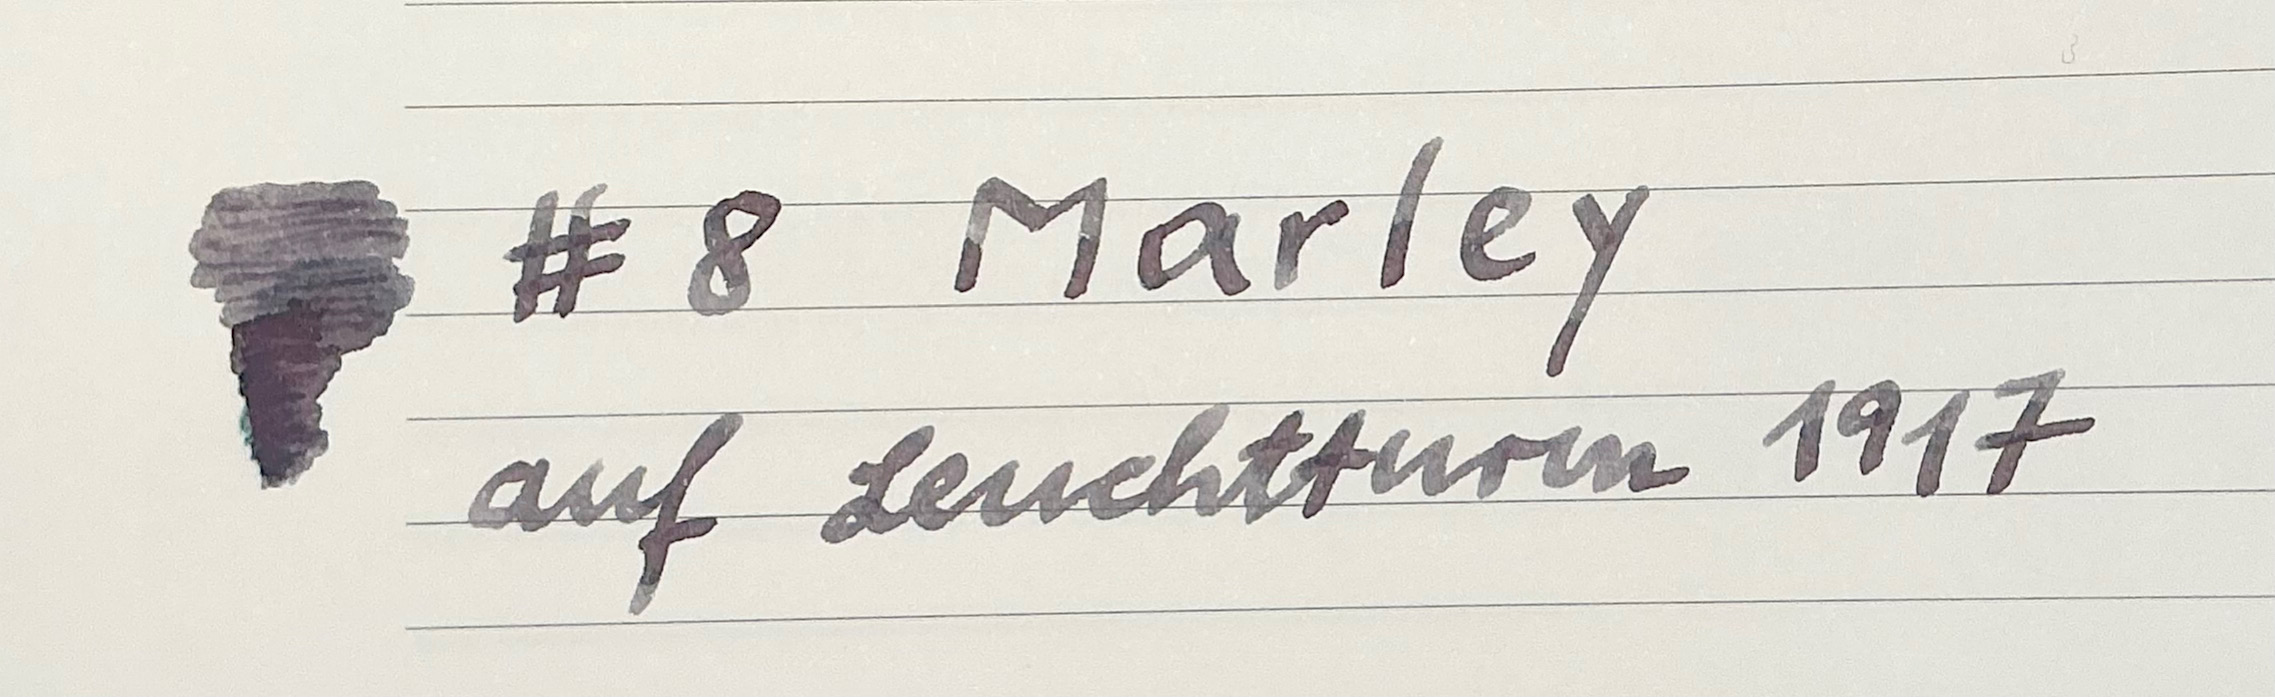 # 8 Marley
auf Leuchtturm 1917